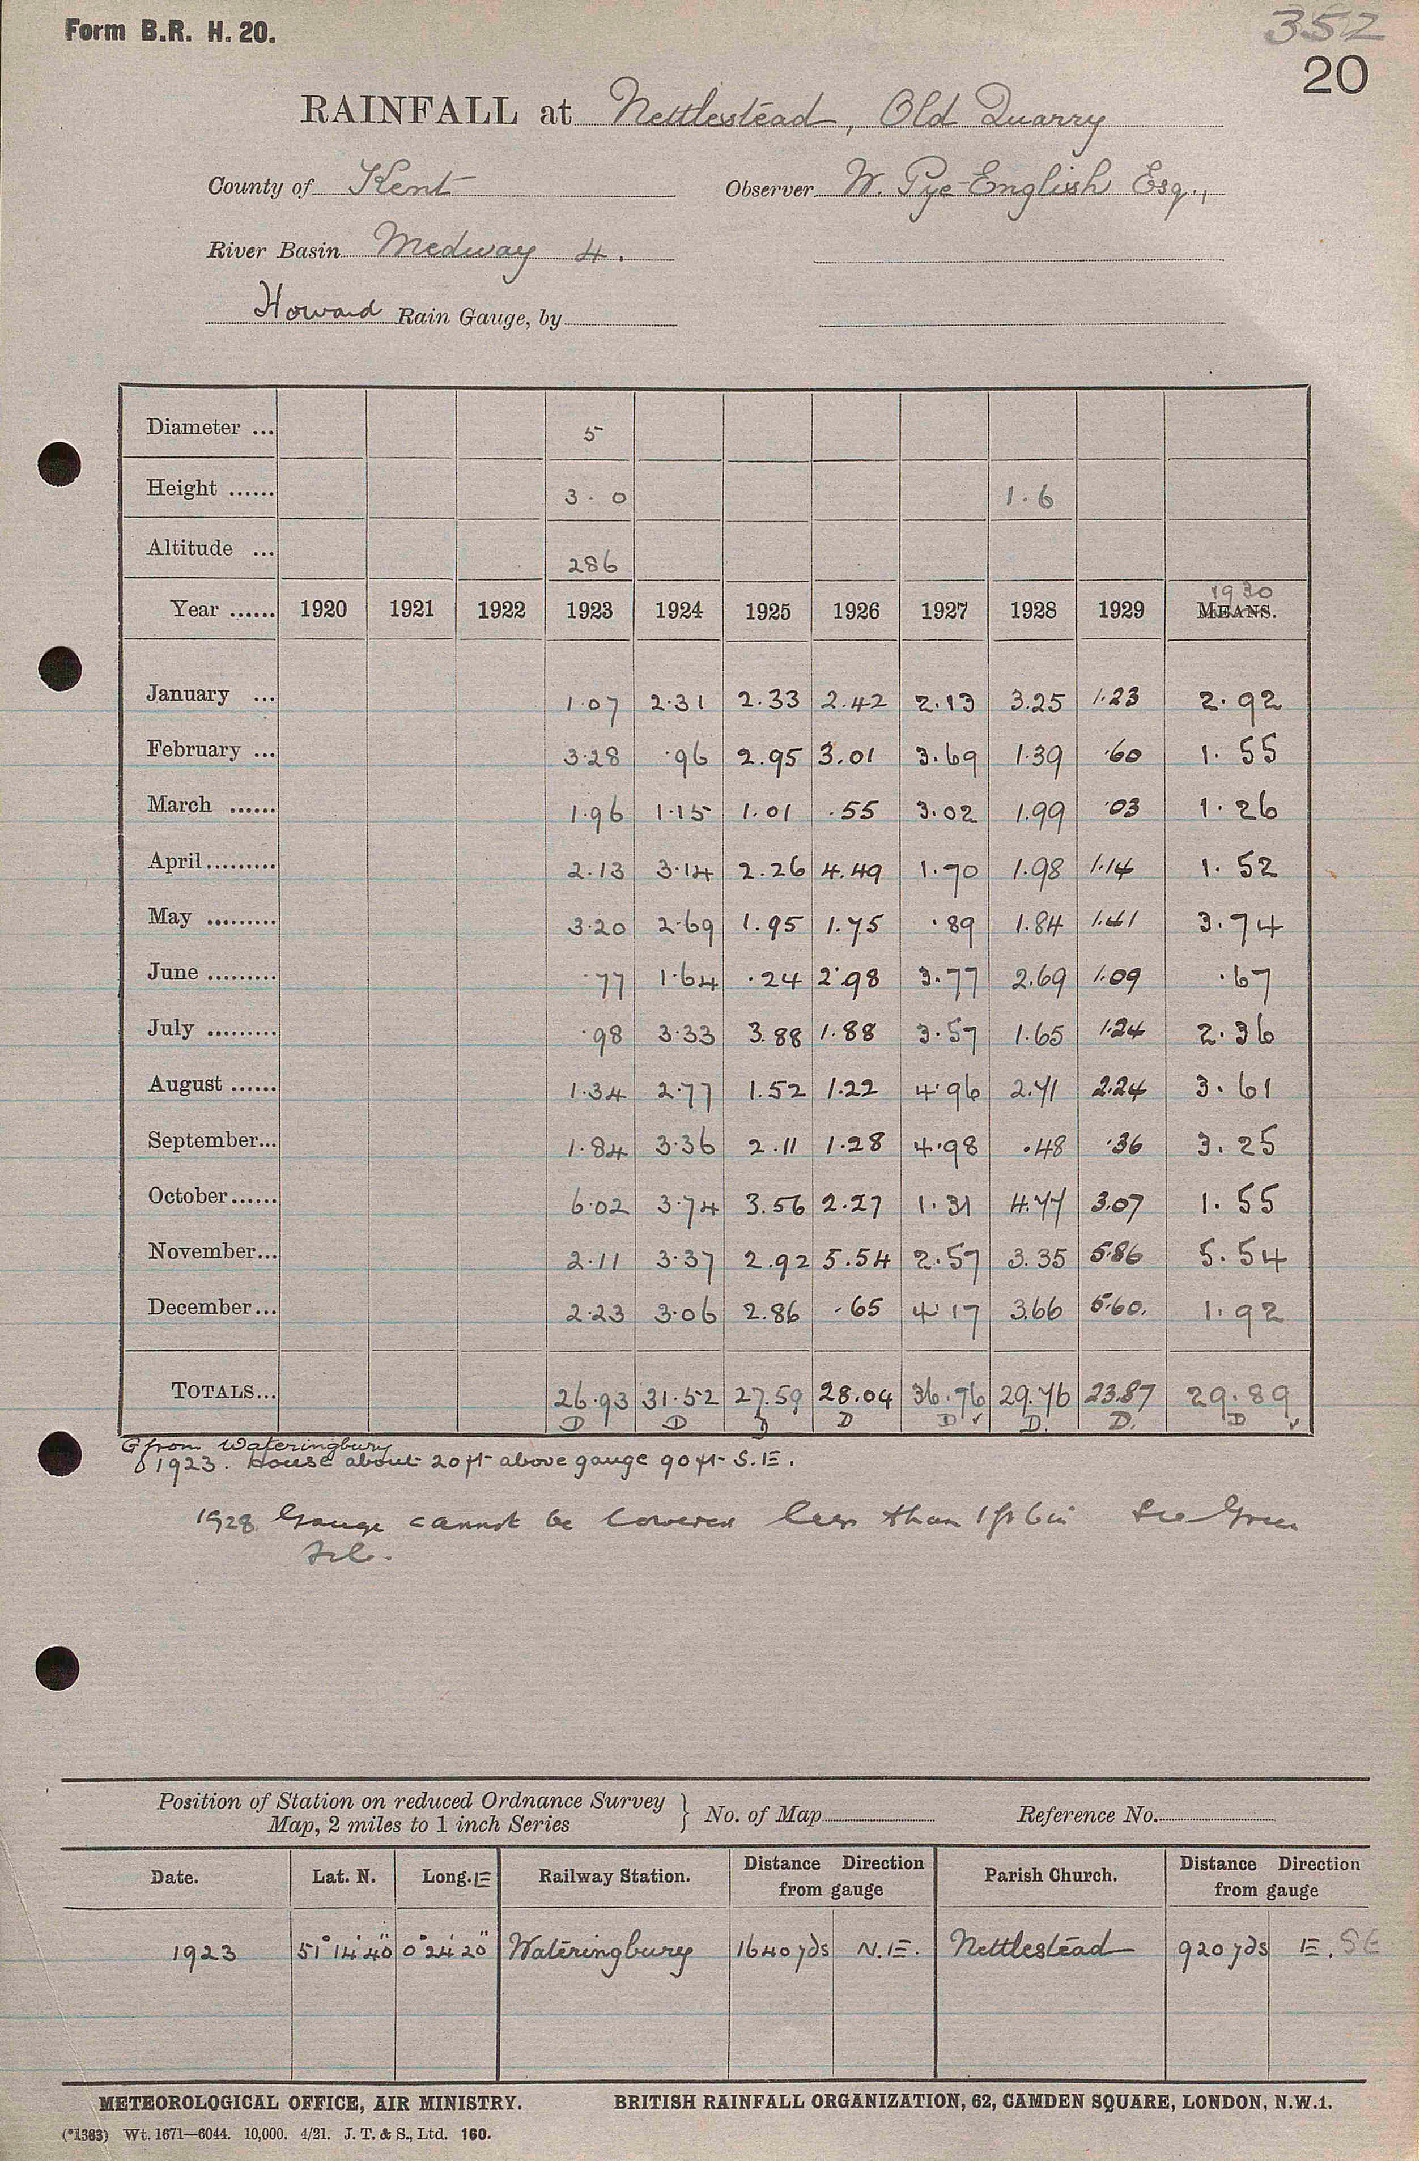 Form B.R. H. 20.
352
20
RAINFALL at Nettlestead, Old Quarry
County of Kent Observer W. Pye-English Esq.,
River Basin Medway 4.
Howard Rain Gauge, by
Diameter ... 5
Height ...... 3 . 0 1 . 6
Altitude ... 286
1930
Year ...... 1920 1921 1922 1923 1924 1925 1926 1927 1928 1929 MEANS.
January ... 1.07 2.31 2.33 2.42 2.13 3.25 1.23 2.92
February ... 3.28 .96 2.95 3.01 3.69 1.39 .60 1.55
March ...... 1.96 1.15 1.01 .55 3.02 1.99 .03 1.26
April......... 2.13 3.14 2.26 4.49 1.70 1.98 1.14 1.52
May ......... 3.20 2.69 1.95 1.75 .89 1.84 1.41 3.74
June ......... .77 1.64 .24 2.98 3.77 2.69 1.09 .67
July ......... .98 3.33 3.88 1.88 3.57 1.65 1.24 2.36
August ...... 1.34 2.77 1.52 1.22 4.96 2.71 2.24 3.61
September... 1.84 3.36 2.11 1.28 4.98 .48 .36 3.25
October...... 6.02 3.74 3.56 2.27 1.31 4.77 3.07 1.55
November... 2.11 3.37 2.92 5.54 2.57 3.35 5.86 5.54
December... 2.23 3.06 2.86 .65 4.17 3.66 5.60. 1.92
TOTALS... 26.93 31.52 27.59 28.04 36.76 29.76 23.87 29.89
D D D D D ✓ D. D. D ✓
G from Wateringbury
1923. House about 20 ft above gauge 90 ft S.E.
1928 Gauge cannot be lowered less than 1 ft 6 in See Green
File.
Position of Station on reduced Ordnance Survey
Map, 2 miles to 1 inch Series } No. of Map Reference No.
Date. Lat. N. Long. E Railway Station. Distance Direction from gauge Parish Church. Distance Direction from gauge
1923 51° 14' 40" 0° 24' 20" Wateringbury 1640 yds N.E. Nettlestead 920 yds E. SE
METEOROLOGICAL OFFICE, AIR MINISTRY. BRITISH RAINFALL ORGANIZATION, 62, CAMDEN SQUARE, LONDON, N.W.1.
(*1363) Wt. 1671—6044. 10,000. 4/21. J. T. & S., Ltd. 160.